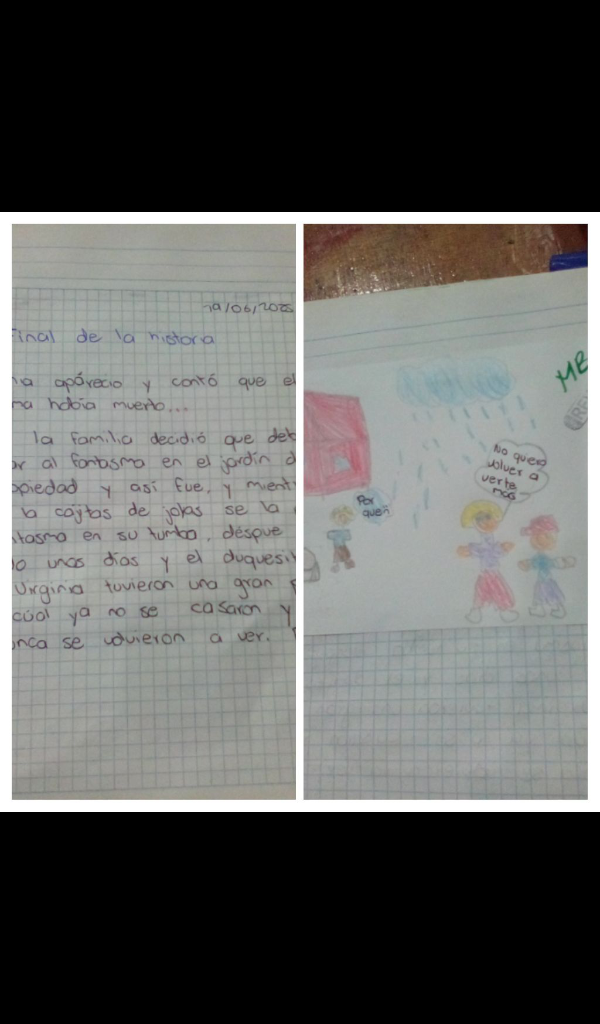 19/06/2025
Final de la historia
ia apárecio y contó que el
ma había muerto...
la familia decidió que deb
ar al fantasma en el jardín d
opiedad y así fue, y mient
la cajitas de joyas se la
tasma en su tumba, déspue
o unos días y el duquesi
Virginia tuvieron una gran
cúal ya no se casaron y
unca se volvieron a ver.
No quero
volver a
verte
mas
Por
queñ